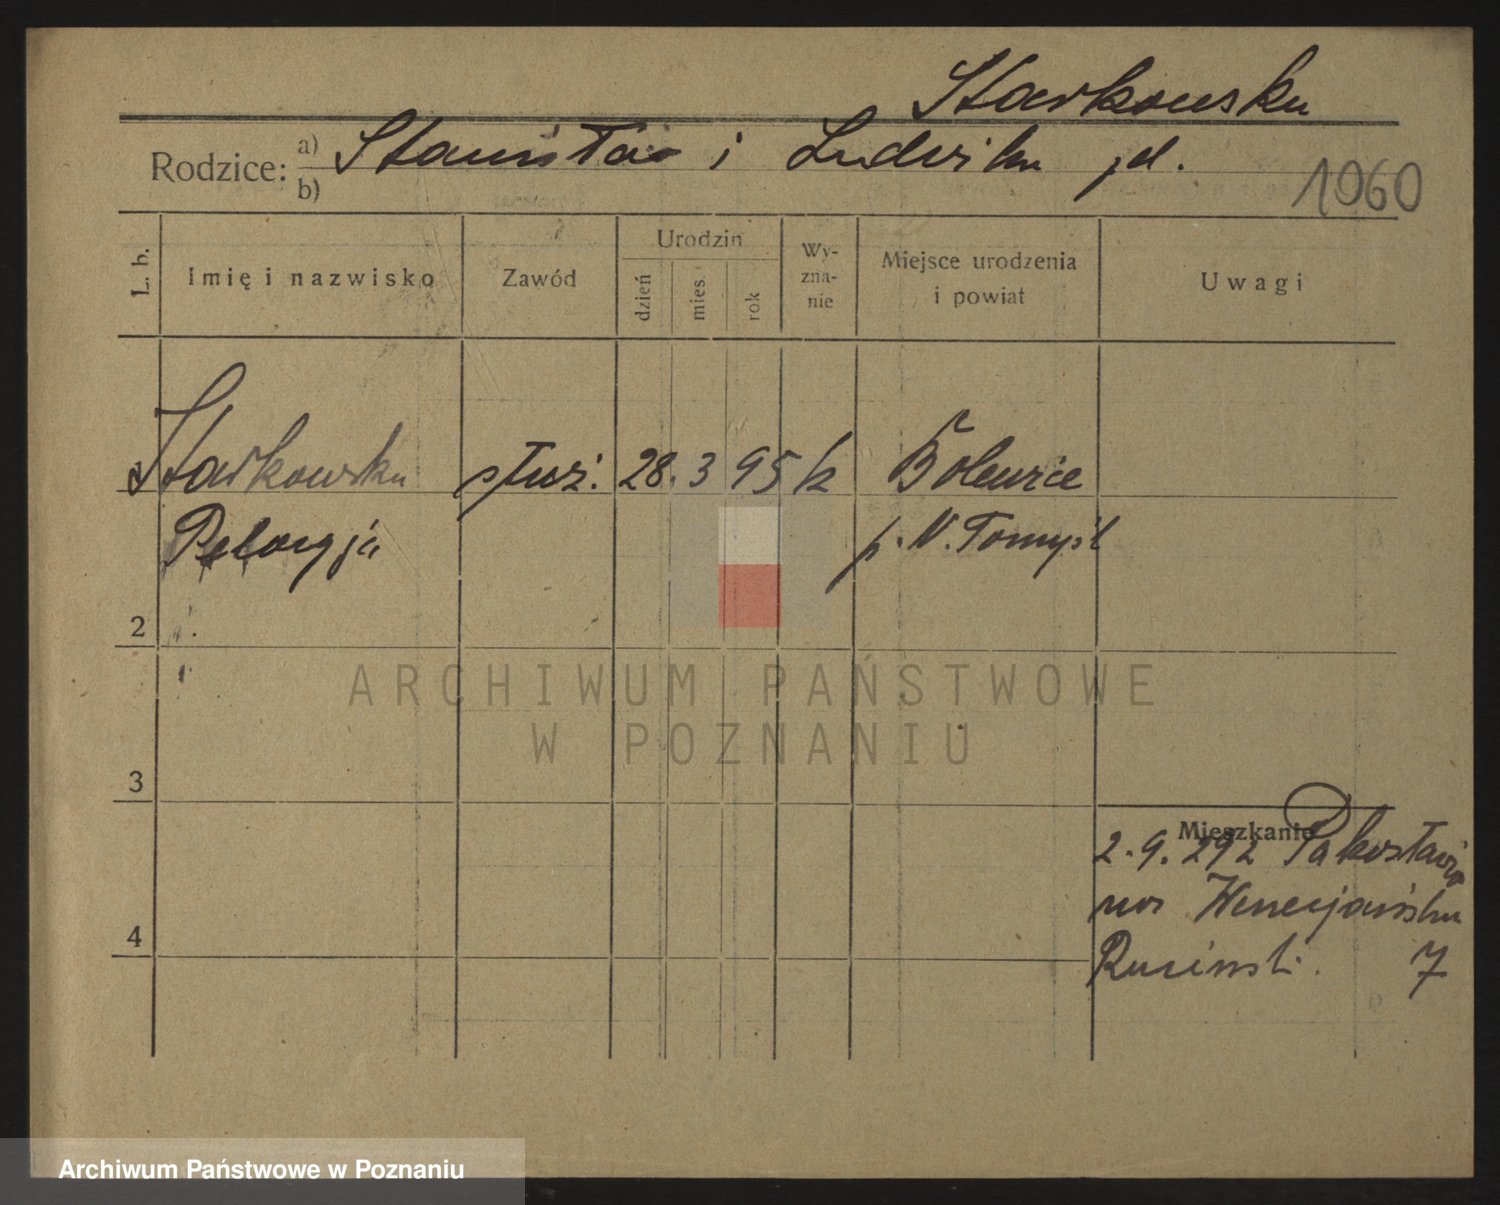 Starkowska
Rodzice: a) Stanisław i Ludwika jd.
b)
1060
L. b. Imię i nazwisko Zawód Urodzin dzień mies. rok Wyznanie Miejsce urodzenia i powiat Uwagi
Starkowska służ. 28. 3 95 k Bolewice
Pelagja p. N. Tomyśl
2
3
Mieszkanie
2. 9. 292
4
Wenecjańska
7
ARCHIWUM PAŃSTWOWE
W POZNANIU
Archiwum Państwowe w Poznaniu